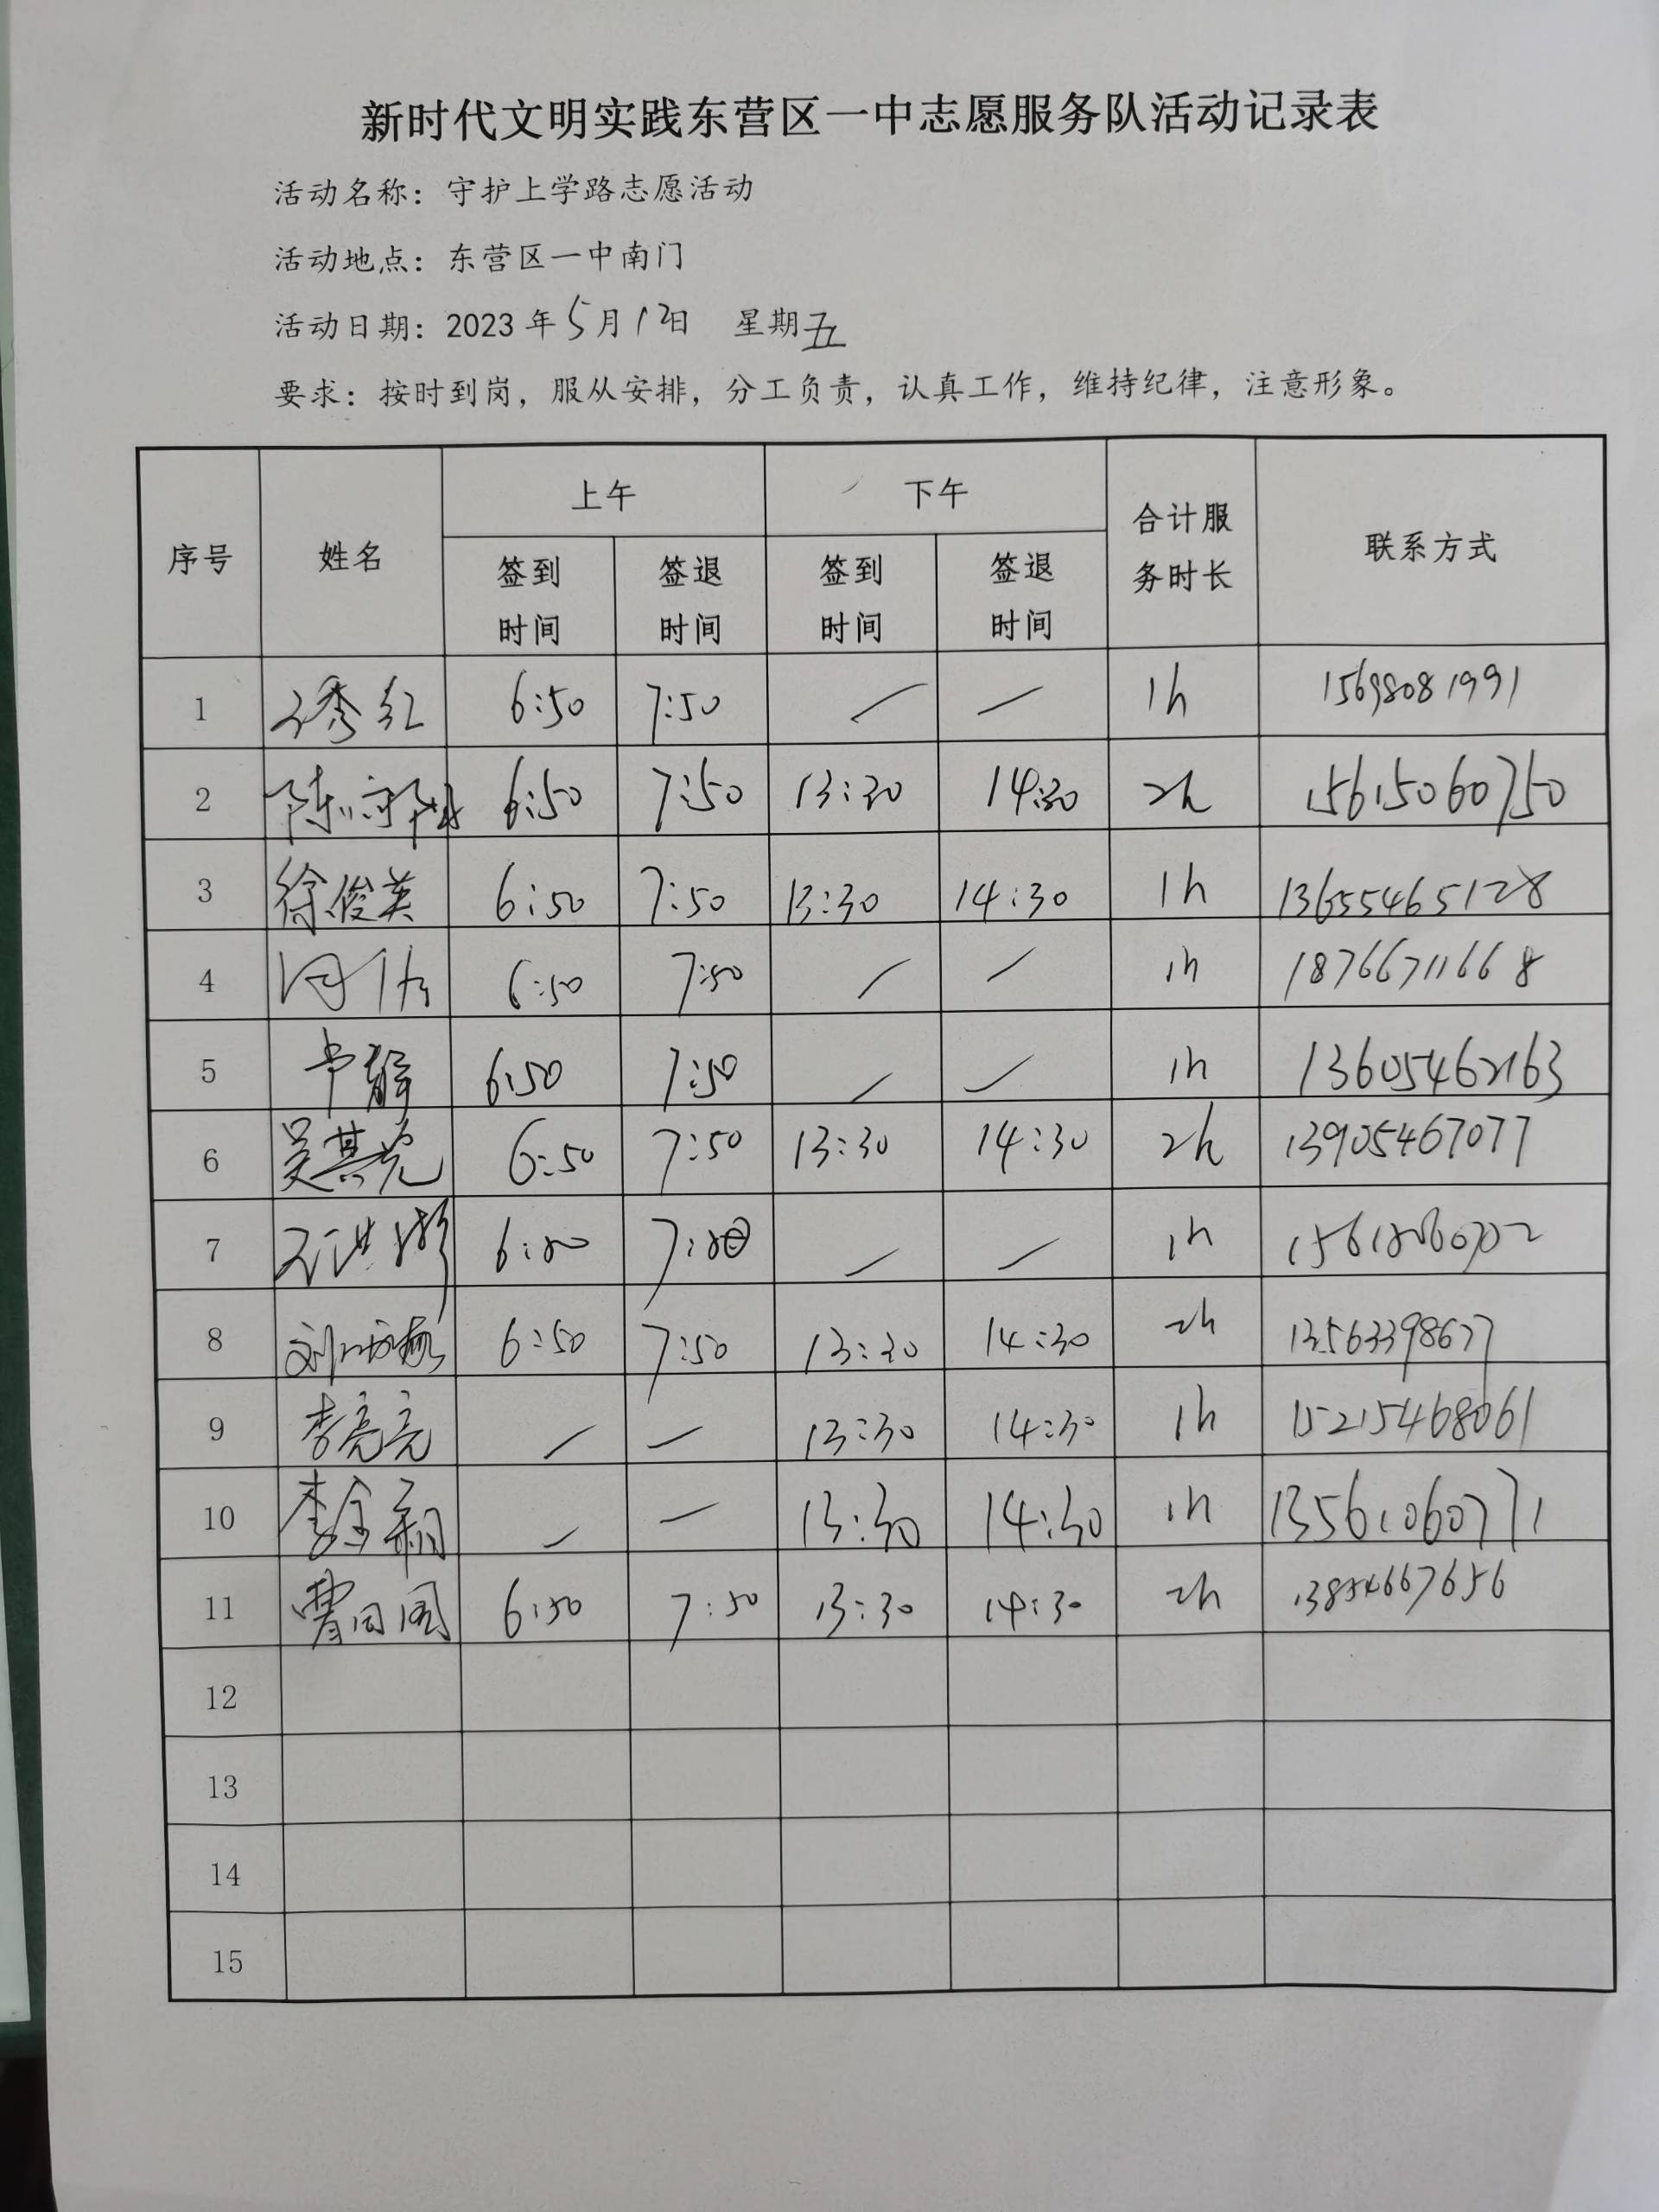 新时代文明实践东营区一中志愿服务队活动记录表
活动名称：守护上学路志愿活动
活动地点：东营区一中南门
活动日期：2023年5月12日 星期五
要求：按时到岗，服从安排，分工负责，认真工作，维持纪律，注意形象。
序号 姓名 上午 下午 合计服务时长 联系方式
签到时间 签退时间 签到时间 签退时间
1 秀红 6:50 7:50 / / 1h 15698081991
2 陈 6:50 7:50 13:30 14:30 2h 15615060750
3 徐俊英 6:50 7:50 13:30 14:30 1h 13655465128
4 6:50 7:50 / / 1h 18766711668
5 静 6:50 7:50 / / 1h 13605462163
6 吴其亮 6:50 7:50 13:30 14:30 2h 13905467077
7 6:50 7:50 / / 1h
8 刘 6:50 7:50 13:30 14:30 2h 13563398677
9 李亮亮 / / 13:30 14:30 1h 15215468061
10 李金 / / 13:30 14:30 1h 13561060771
11 曹 6:50 7:50 13:30 14:30 2h 13854667656
12
13
14
15